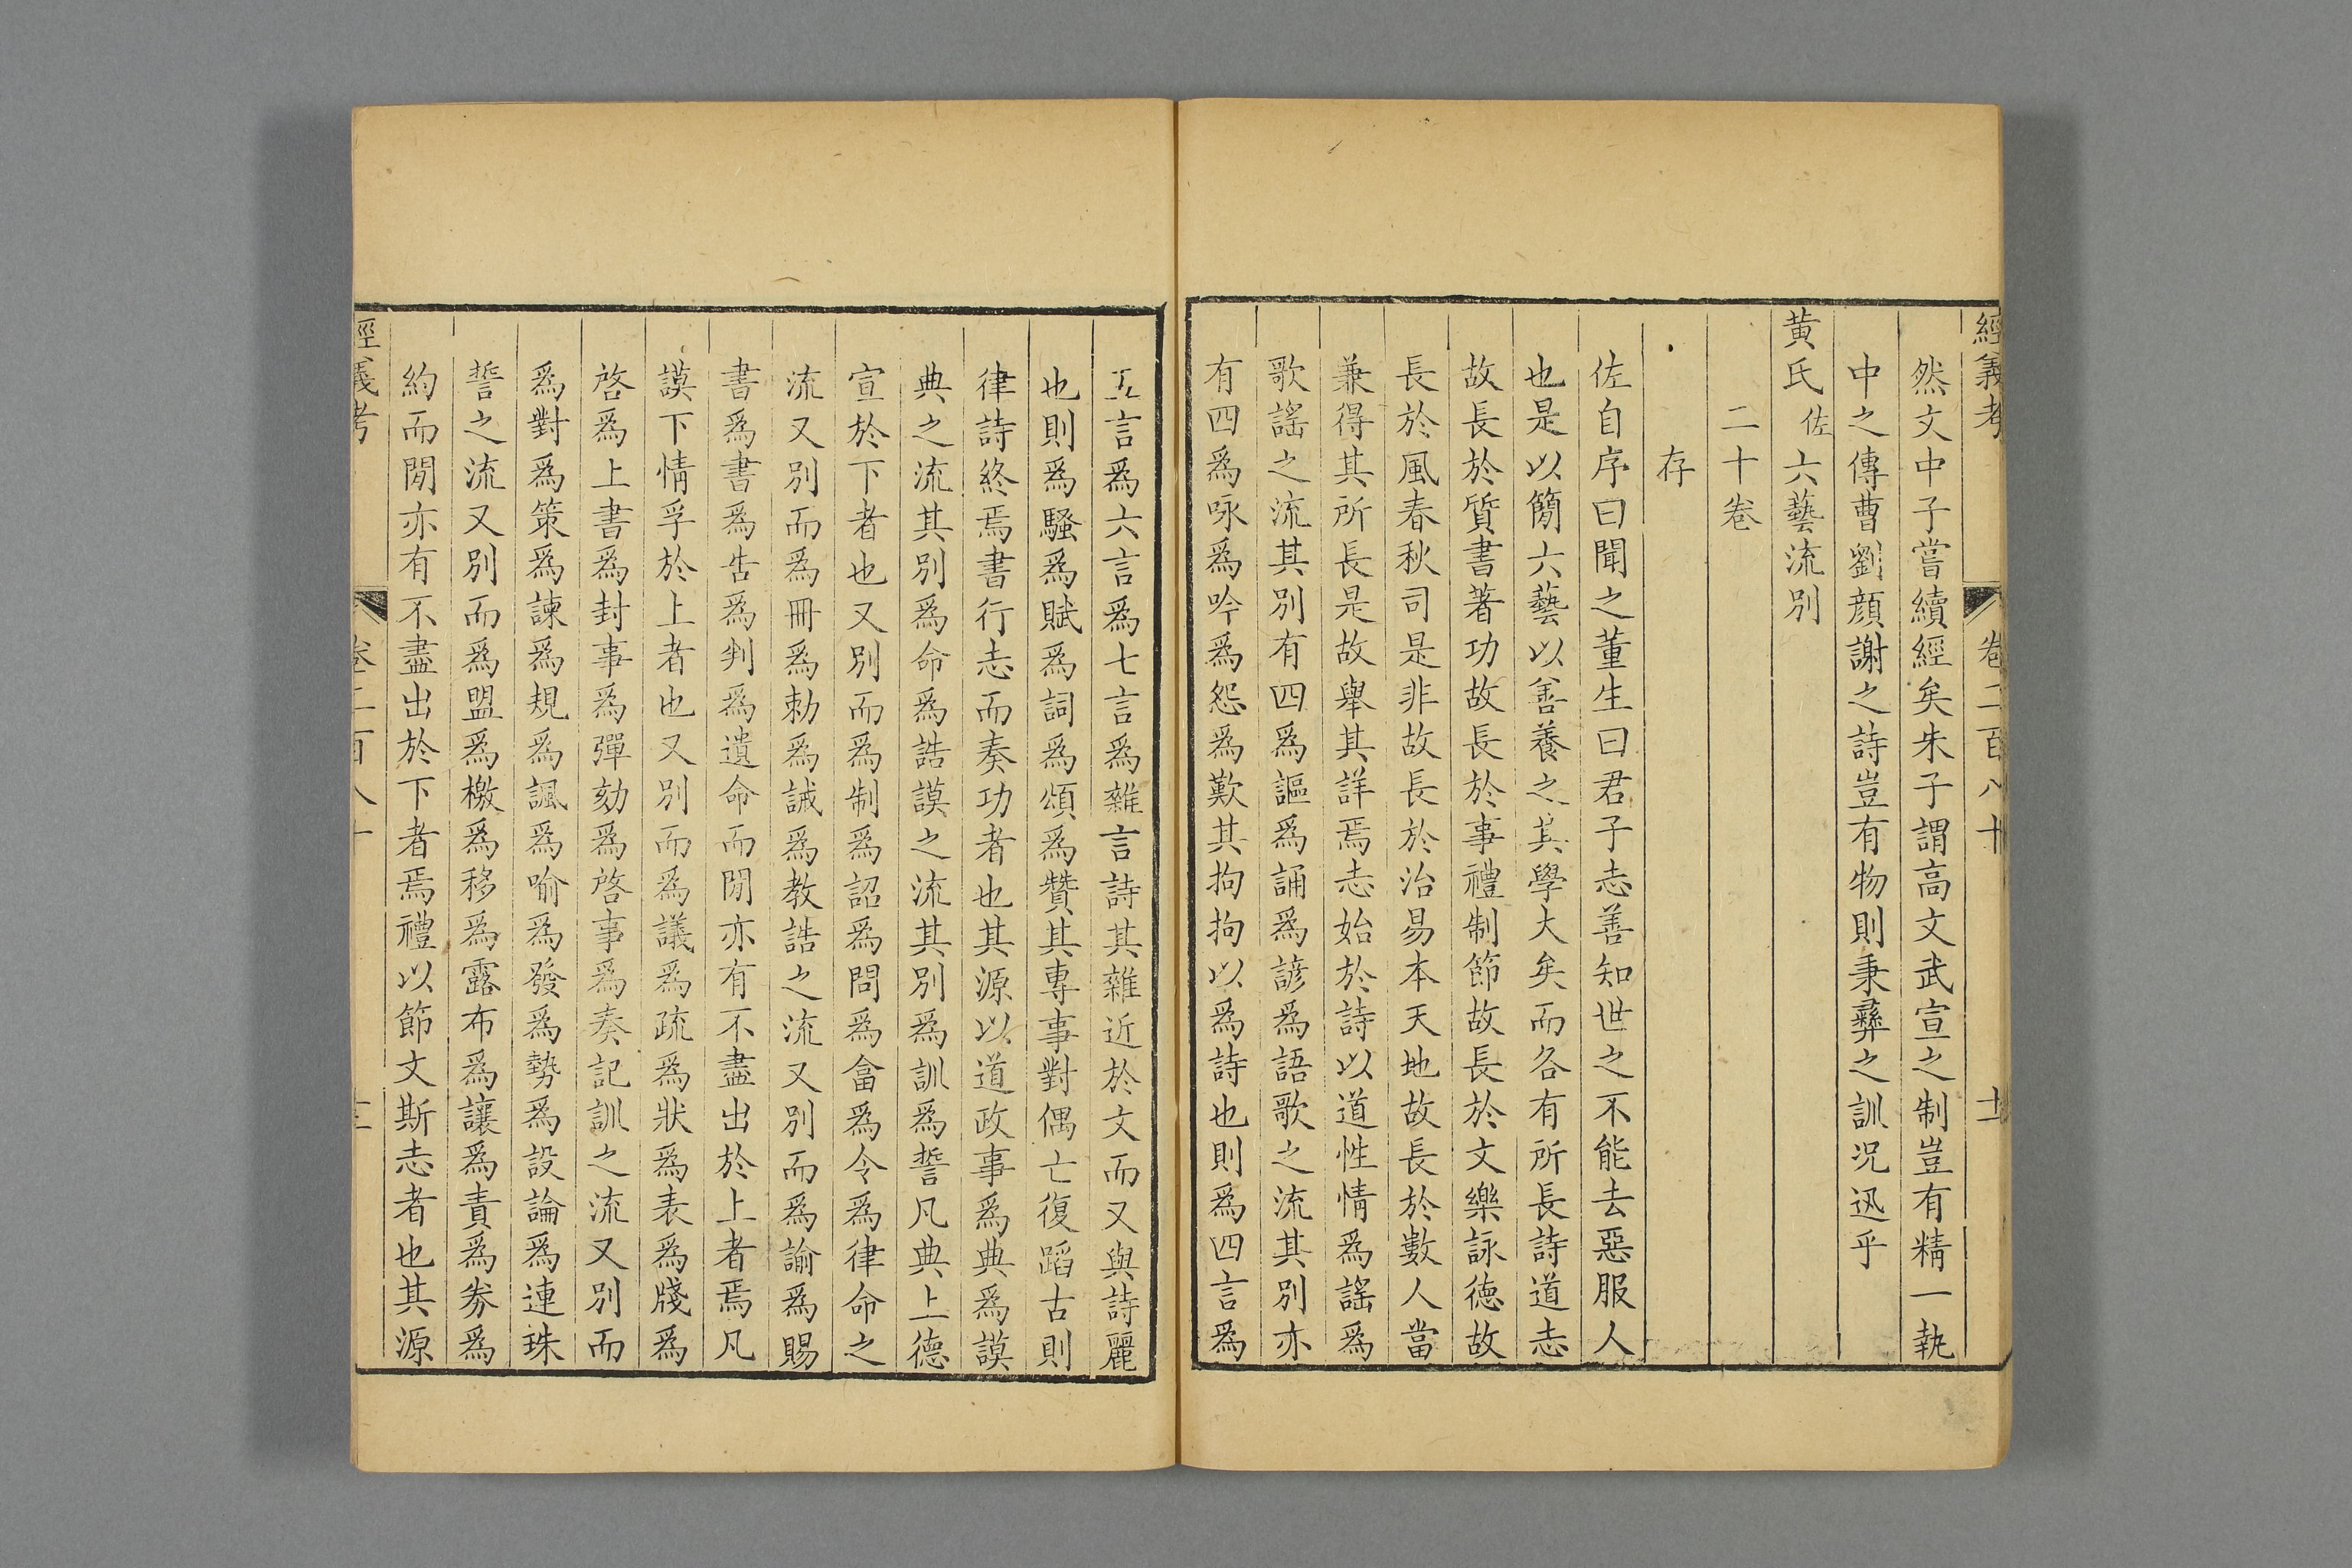 經義考 卷二百八十 十一
然文中子嘗續經矣朱子謂高文武宣之制豈有精一執
中之傳曹劉顔謝之詩豈有物則秉彝之訓况迅乎
黄氏佐六藝流別
二十卷
存
佐自序曰聞之董生曰君子志善知世之不能去惡服人
也是以簡六藝以善養之其學大矣而各有所長詩道志
故長於質書著功故長於事禮制節故長於文樂詠徳故
長於風春秋司是非故長於治易本天地故長於數人當
兼得其所長是故舉其詳焉志始於詩以道性情爲謡爲
歌謡之流其別有四爲謳爲誦爲諺爲語歌之流其別亦
有四爲咏爲吟爲怨爲歎其拘拘以爲詩也則爲四言爲
五言爲六言爲七言爲雜言詩其雜近於文而又與詩麗
也則爲騷爲賦爲詞爲頌爲贊其專事對偶亡復蹈古則
律詩終焉書行志而奏功者也其源以道政事爲典爲謨
典之流其別爲命爲誥謨之流其別爲訓爲誓凡典上德
宣於下者也又別而爲制爲詔爲問爲畣爲令爲律命之
流又別而爲冊爲勅爲誡爲教誥之流又別而爲諭爲賜
書爲書爲告爲判爲遺命而閒亦有不盡出於上者焉凡
謨下情孚於上者也又別而爲議爲疏爲狀爲表爲牋爲
啓爲上書爲封事爲彈劾爲啓事爲奏記訓之流又別而
爲對爲策爲諫爲規爲諷爲喻爲發爲勢爲設論爲連珠
誓之流又別而爲盟爲檄爲移爲露布爲讓爲責爲券爲
約而閒亦有不盡出於下者焉禮以節文斯志者也其源
經義考 卷二百八十